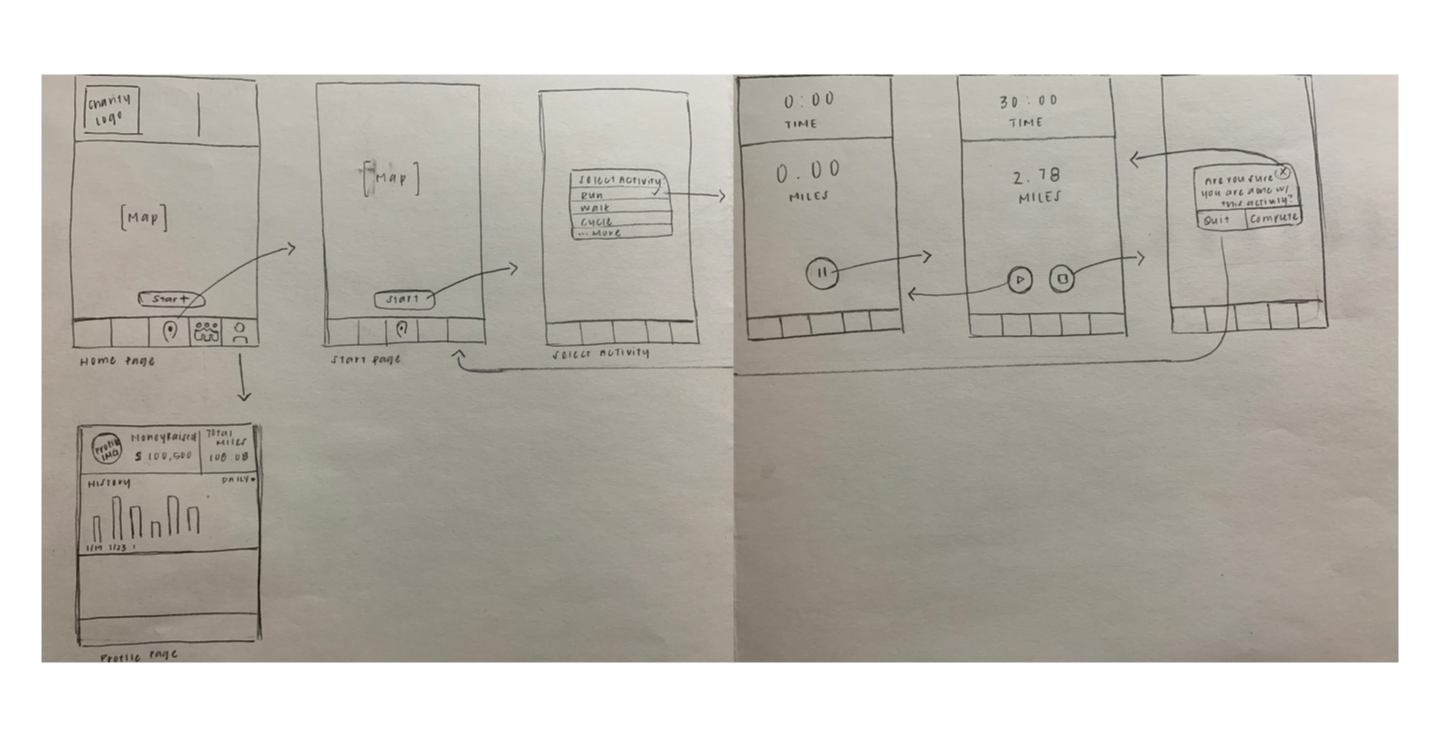 Charity
Logo
[Map]
Start
Home Page
[Map]
Start
Start Page
Select Activity
Run
Walk
Cycle
... More
Select Activity
0:00
TIME
0.00
MILES
30:00
TIME
2.78
MILES
Are you sure
you are done w/
this activity?
Quit
Complete
Profile
IMG
Money Raised
$ 100,500
Total
Miles
108.08
History
DAILY
1/19 1/23
Profile Page